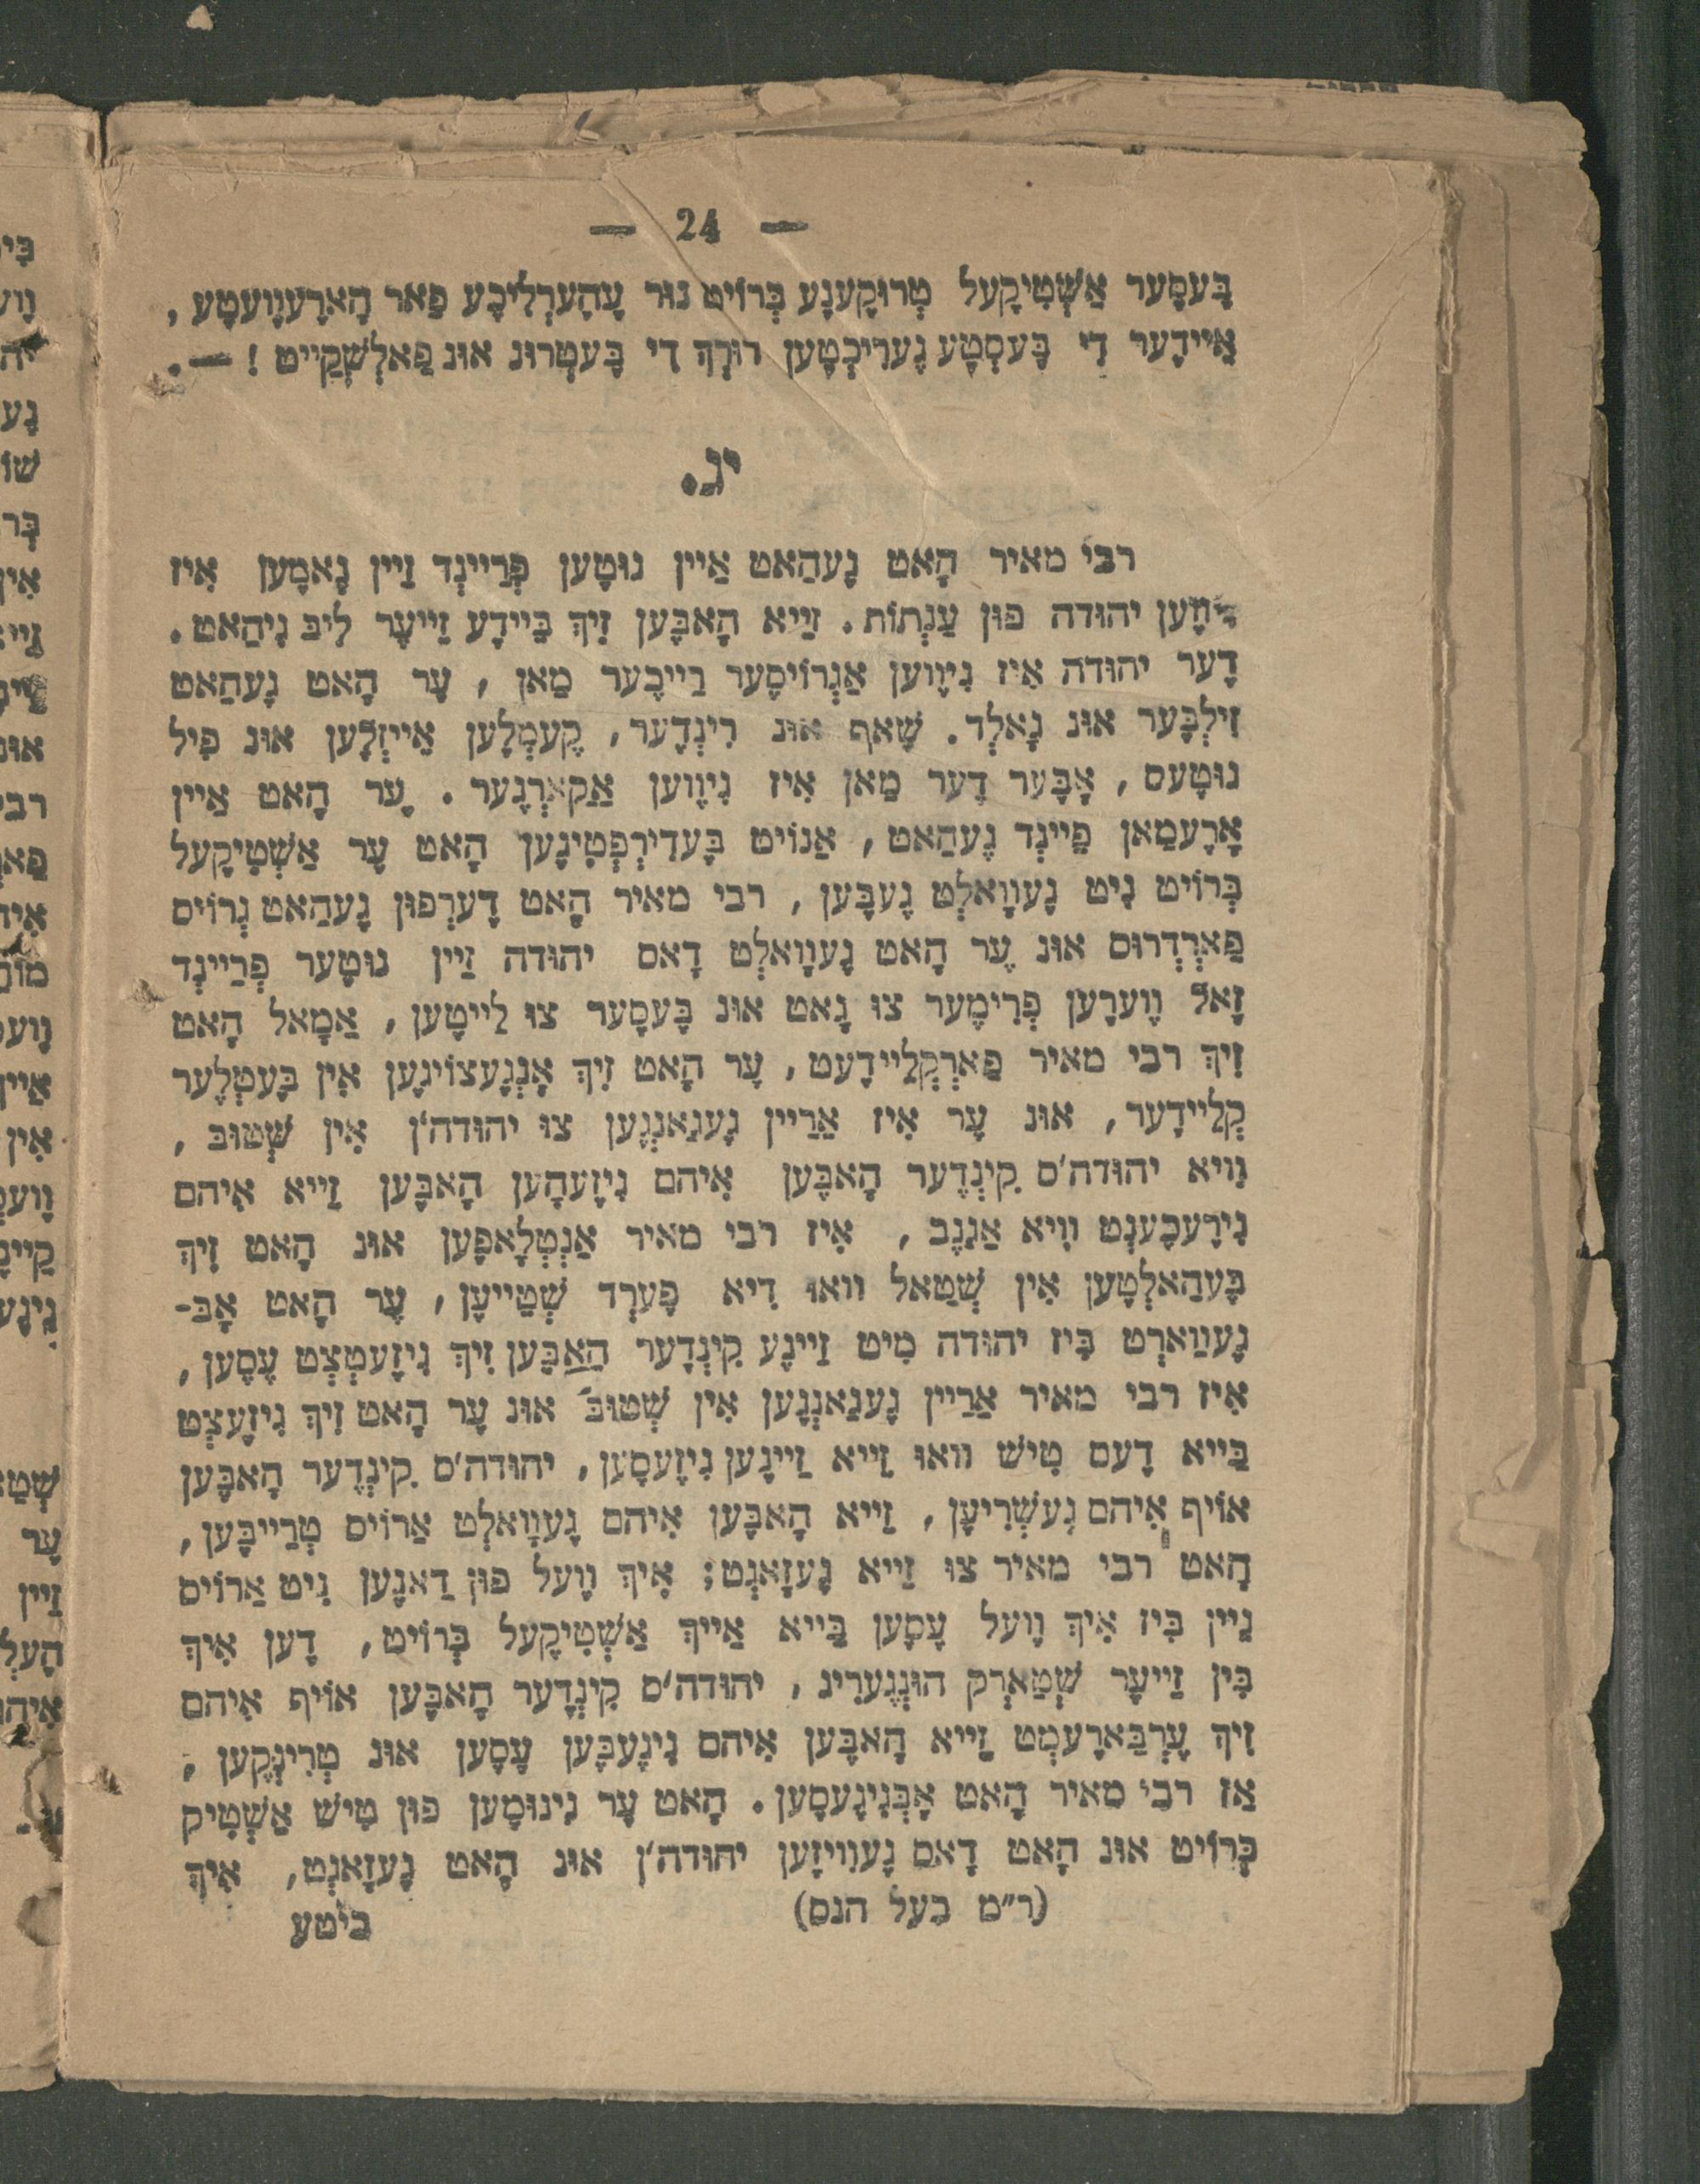 — 24 —
בֶּעסֶער אַשְׁטִיקֶעל טְרוּקֶענֶע בְּרוֹיט נוּר עֶהֶערְלִיכֶע פַאר הָארֶעוָועטֶע ,
אֵיידֶער דִי בֶּעסְטֶע גֶערִיכְטֶען דוּרְךְ דִי בֶּעטְרוּג אוּנ פַאלְשְׁקֵייט ! —.
יג.
רבי מאיר הָאט גֶעהַאט אַיין גוּטֶען פְרַיינְד זַיין נָאמֶען אִיז
יהוּדה פוּן עַנְתוֹת. זַייא הָאבֶּען זִיךְ בַּיידֶע זַייעֶר לִיב גִיהַאט.
דֶער יהוּדה אִיז גִיוֶוען אַגְרוֹיסֶער רַייכֶער מַאן , עֶר הָאט גֶעהַאט
זִילְבֶּער אוּנ גָאלְד. שָׁאף אוּנ רִינְדֶער, קֶעמְלֶען אֵייזְלֶען אוּנ פִיל
גוּטֶעס , אָבֶּער דֶער מַאן אִיז גִיוֶוען אַקַארְגֶער . עֶר הָאט אַיין
אָרֶעמַאן פַיינְד גֶעהַאט, אַנוֹיט בֶּעדִירְפְטִיגֶען הָאט עֶר אַשְׁטִיקֶעל
בְּרוֹיט נִיט גֶעוָואלְט גֶעבֶּען , רבי מאיר הָאט דֶערְפוּן גֶעהַאט גְרוֹיס
פַארְדְרוּס אוּנ עֶר הָאט גֶעוָואלְט דָאס יהוּדה זַיין גוּטֶער פְרַיינְד
זָאל וֶוערֶען פְרִימֶער צוּ גָאט אוּנ בֶּעסֶער צוּ לַייטֶען, אַמָאל הָאט
זִיךְ רבי מאיר פַארְקְלֵיידֶעט, עֶר הָאט זִיךְ אָנְגֶעצוֹיגֶען אִין בֶּעטְלֶער
קְלֵיידֶער, אוּנ עֶר אִיז אַרַיין גֶעגַאנְגֶען צוּ יהוּדה'ן אִין שְׁטוּב ,
וִויא יהוּדה'ס קִינְדֶער הָאבֶּען אִיהם גִיזֶעהֶען הָאבֶּען זַייא אִיהם
גִירֶעכֶענְט וִויא אַגַנֶב , אִיז רבי מאיר אַנְטְלָאפֶען אוּנ הָאט זִיךְ
בֶּעהַאלְטֶען אִין שְׁטַאל וואוּ דִיא פֶּערְד שְׁטֵייעֶן, עֶר הָאט אָבּ-
גֶעוַוארְט בִּיז יהוּדה מִיט זַיינֶע קִינְדֶער הָאבֶּען זִיךְ גִיזֶעטְצְט עֶסֶען,
אִיז רבי מאיר אַרַיין גֶעגַאנְגֶען אִין שְׁטוּבּ אוּנ עֶר הָאט זִיךְ גִיזֶעצְט
בַּייא דֶעם טִישׁ וואוּ זַייא זַיינֶען גִיזֶעסֶען, יהוּדה'ס קִינְדֶער הָאבֶּען
אוֹיף אִיהם גֶעשְׁרִיעֶן, זַייא הָאבֶּען אִיהם גֶעוָואלְט אַרוֹיס טְרַייבֶּען,
הָאט רבי מאיר צוּ זַייא גֶעזָאגְט; אִיךְ וֶועל פוּן דַאנֶען נִיט אַרוֹיס
גֵיין בִּיז אִיךְ וֶועל עֶסֶען בַּייא אַייךְ אַשְׁטִיקֶעל בְּרוֹיט, דֶען אִיךְ
בִּין זַייעֶר שְׁטַארְק הוּנְגֶערִיג, יהוּדה'ס קִינְדֶער הָאבֶּען אוֹיף אִיהם
זִיךְ עֶרְבַּארֶעמְט זַייא הָאבֶּען אִיהם גִיגֶעבֶּען עֶסֶען אוּנ טְרִינְקֶען ,
אַז רבי מאיר הָאט אָבְּגִיגֶעסֶען. הָאט עֶר גִינוּמֶען פוּן טִישׁ אַשְׁטִיק
בְּרוֹיט אוּנ הָאט דָאס גֶעוִויזֶען יהוּדה'ן אוּנ הָאט גֶעזָאגְט, אִיךְ
(ר"מ בעל הנס) בִּיטֶע